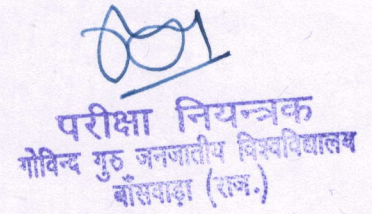 परीक्षा नियन्त्रक
गोविन्द गुरु जनजातीय विश्वविद्यालय
बाँसवाड़ा (राज.)